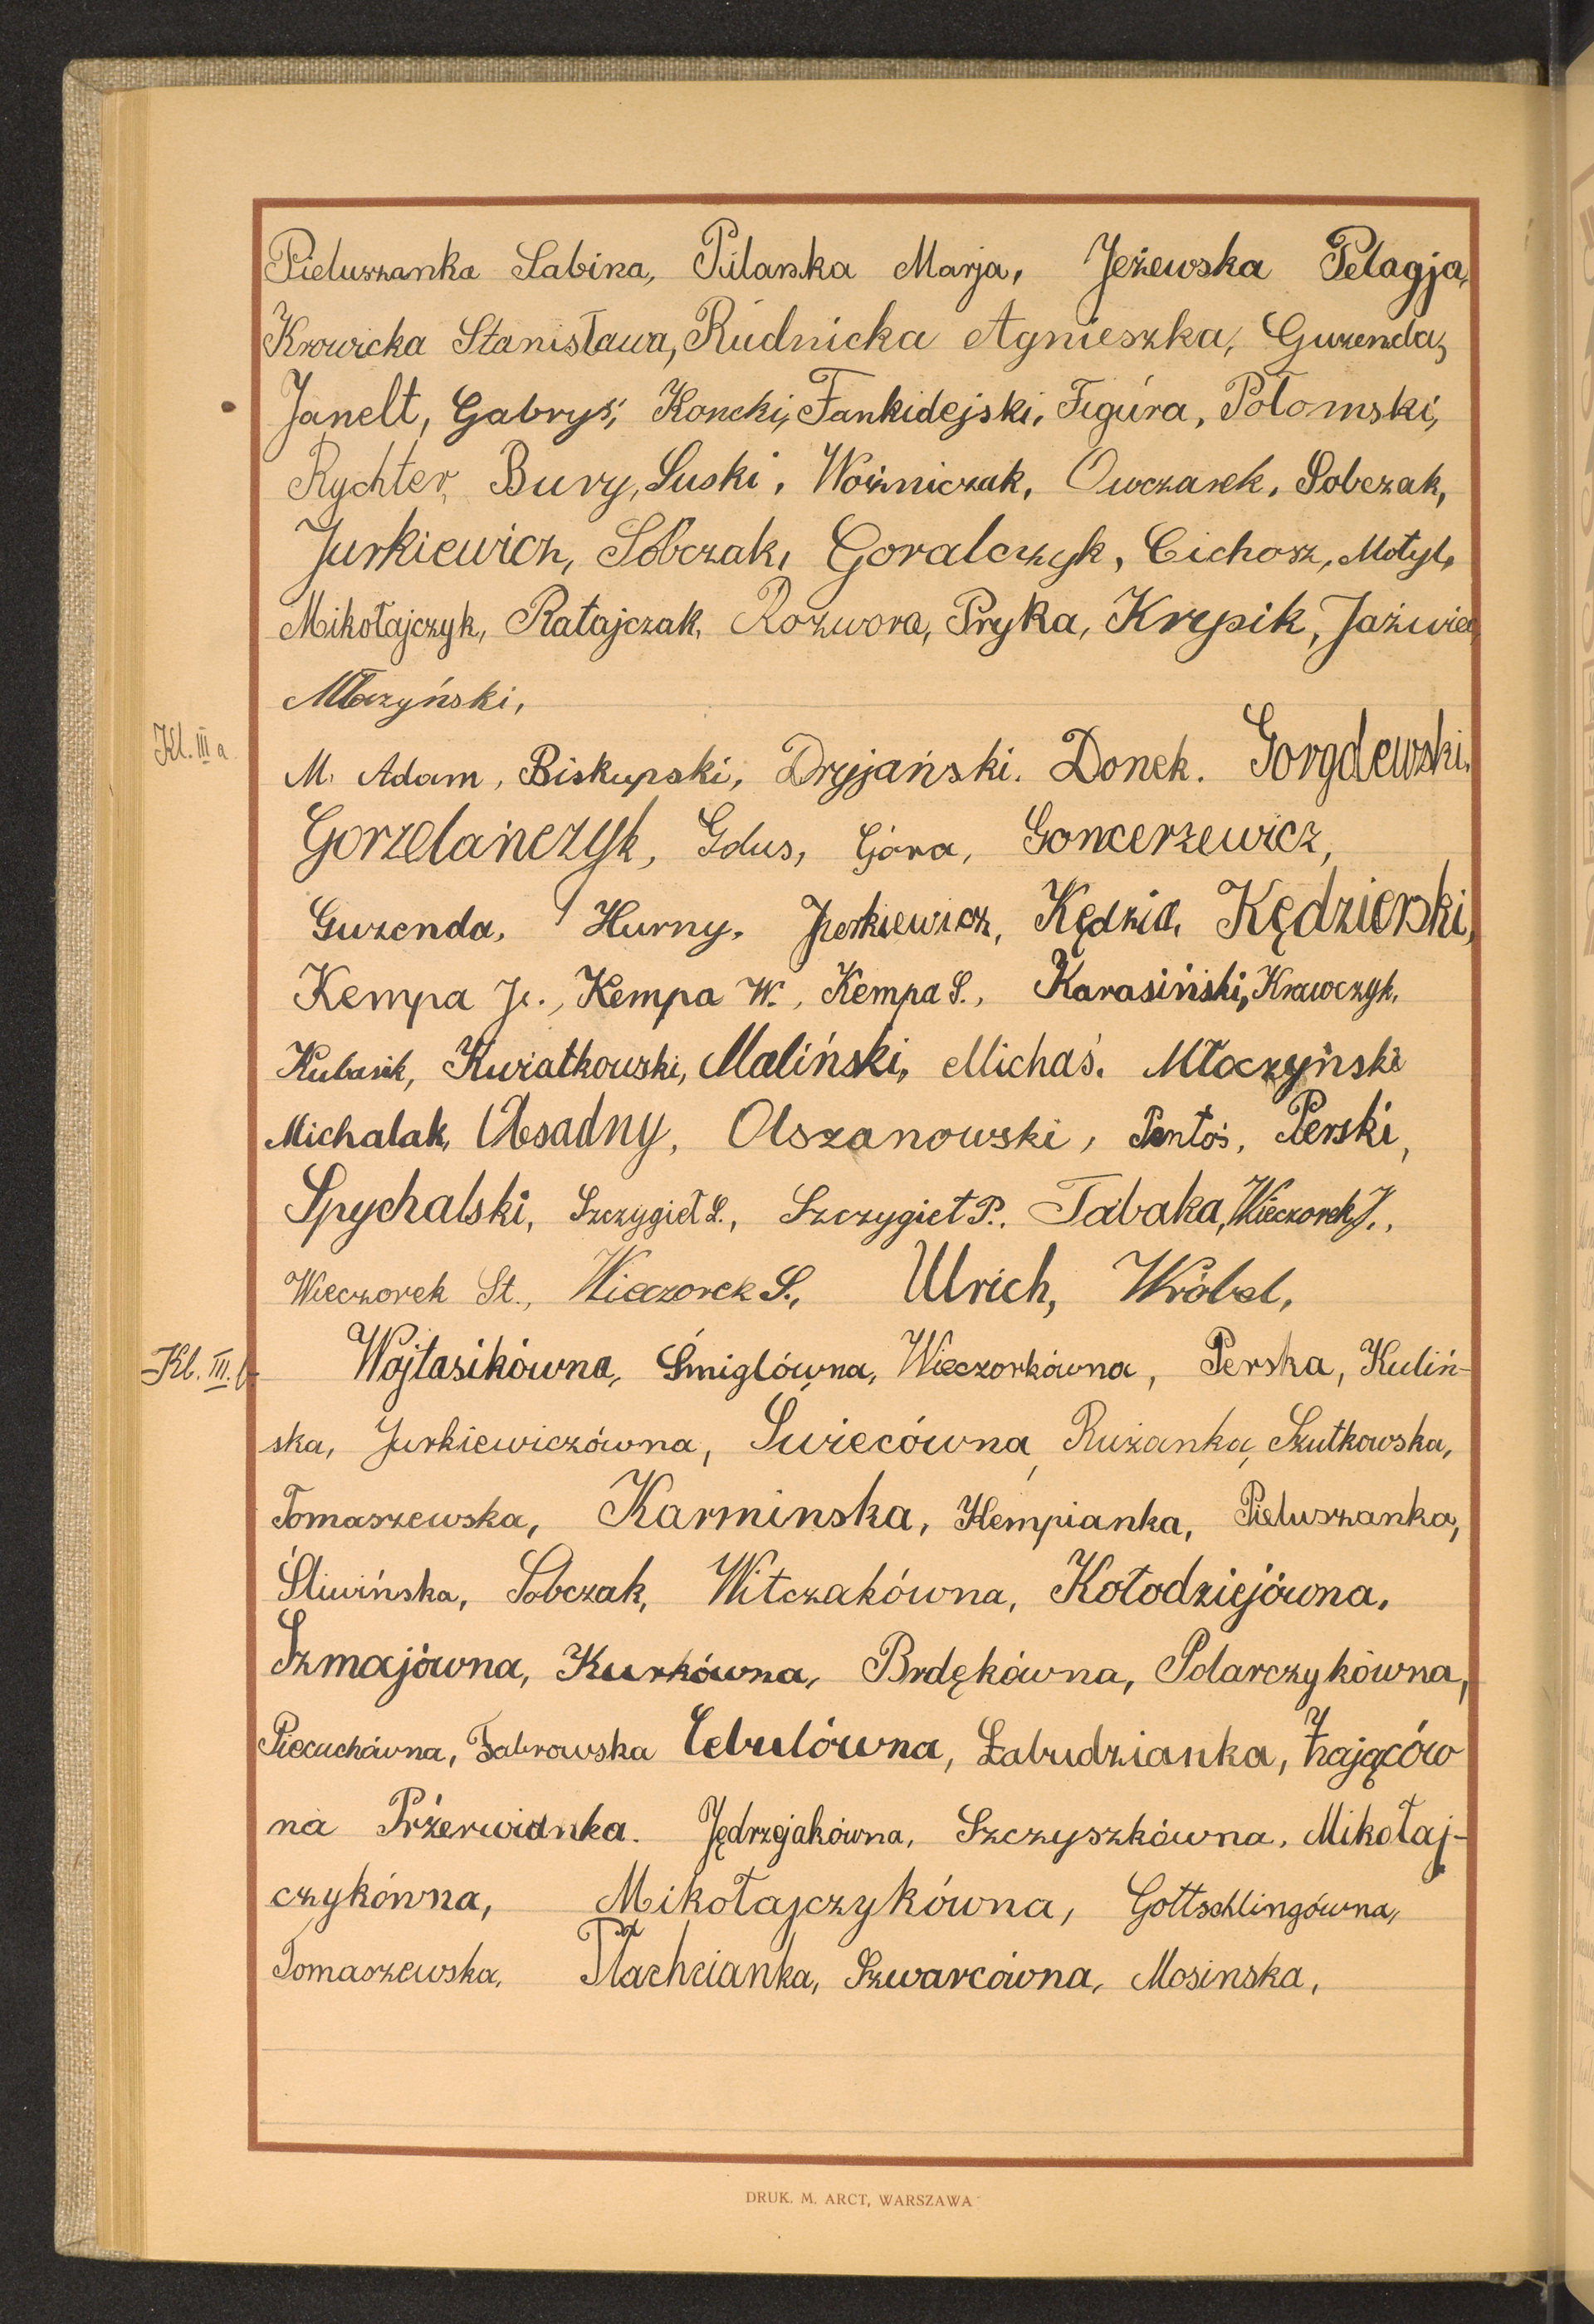 Pieluszanka Sabina, Pulanska Marja, Jeżewska Pelagja,
Krowicka Stanisława, Rudnicka Agnieszka, Guzenda,
Janelt, Gabryś, Koncki, Fankidejski, Figura, Połomski,
Rychter, Bury, Suski, Woźniczak, Owczarek, Sobczak,
Jurkiewicz, Sobczak, Goralczyk, Cichosz, Motyl,
Mikołajczyk, Ratajczak, Rozwora, Pryka, Krypik, Jaźwiec,
Młoczyński,
Kl. III a
M. Adam, Biskupski, Dryjański. Donek. Gorgolewski,
Gorzelańczyk, Gdus, Góra, Goncerzewicz,
Guzenda, Hurny, Jurkiewicz, Kędzia, Kędzierski,
Kempa Jr., Kempa W., Kempa S., Karasiński, Krawczyk,
Kubasik, Kwiatkowski, Maliński, Michaś. Młoczyński
Michalak, Obsadny, Olszanowski, Pantoś, Perski,
Spychalski, Szczygieł S., Szczygieł P., Tabaka, Wieczorek J.,
Wieczorek St., Wieczorek S., Ulrich, Wróbel,
Kl. III. b
Wojtasikówna, Śmiglówna, Wieczorkówna, Perska, Kuliń-
ska, Jurkiewiczówna, Swiecówna, Rużanka, Szutkowska,
Tomaszewska, Karminska, Kempianka, Pieluszanka,
Śliwińska, Sobczak, Witczakówna, Kołodziejówna,
Szmajówna, Kurkówna, Brdękówna, Polarczykówna,
Piecuchówna, Fabrowska Cebulówna, Łabudzianka, Zająców
na Prżerwianka. Jędrzejakówna, Szczyszkówna, Mikołaj-
czykówna, Mikołajczykówna, Gottschlingówna,
Tomaszewska, Płachcianka, Szwarcówna, Mosinska,
DRUK. M. ARCT, WARSZAWA